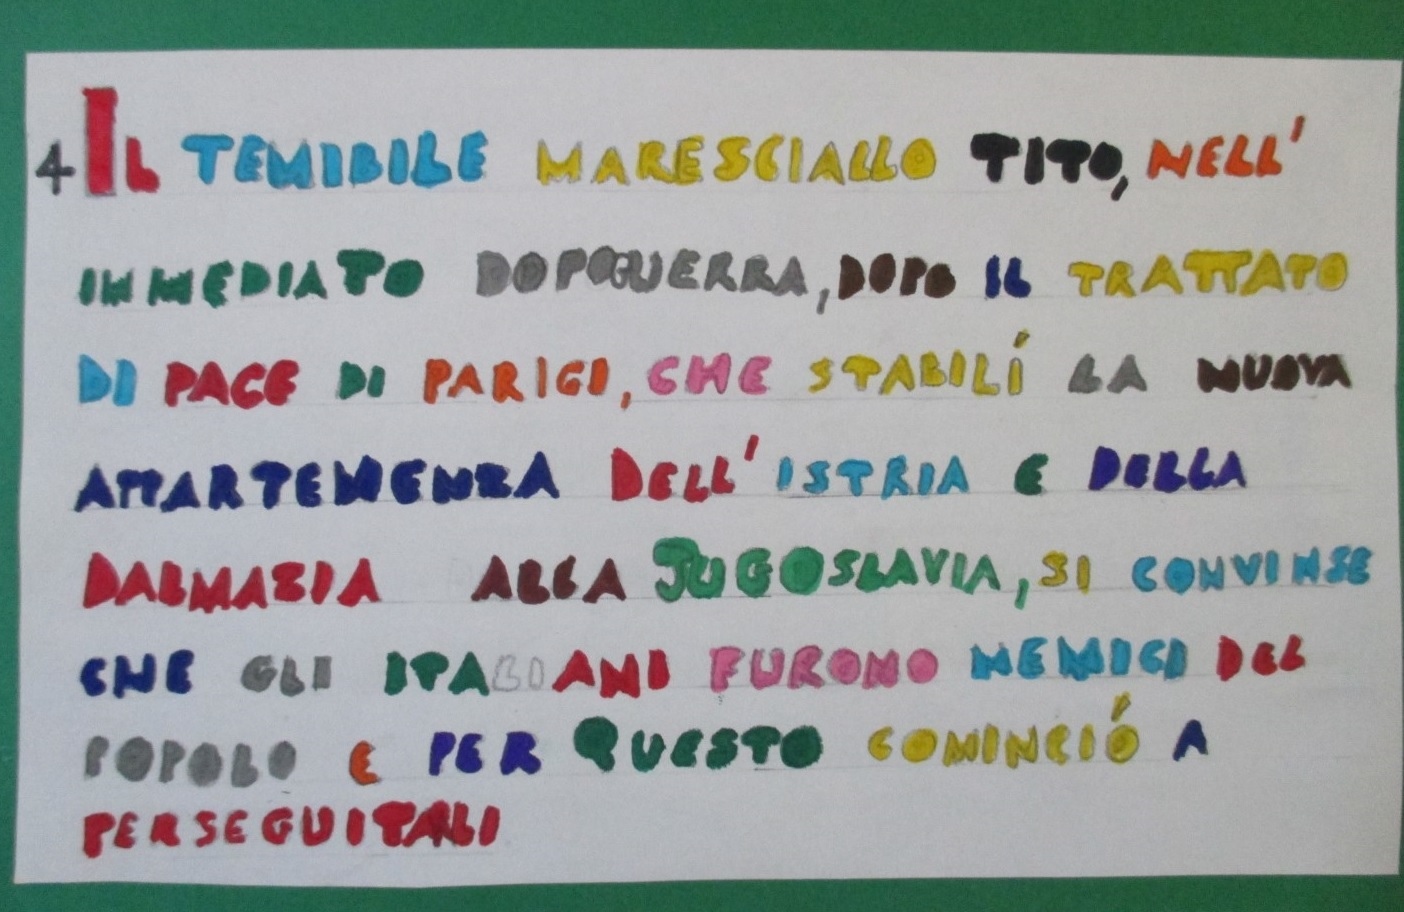 4 IL TEMIBILE MARESCIALLO TITO, NELL'
IMMEDIATO DOPOGUERRA, DOPO IL TRATTATO
DI PACE DI PARIGI, CHE STABILÍ LA NUOVA
APPARTENENZA DELL'ISTRIA E DELLA
DALMAZIA ALLA JUGOSLAVIA, SI CONVINSE
CHE GLI ITALIANI FURONO NEMICI DEL
POPOLO E PER QUESTO COMINCIÓ A
PERSEGUITALI